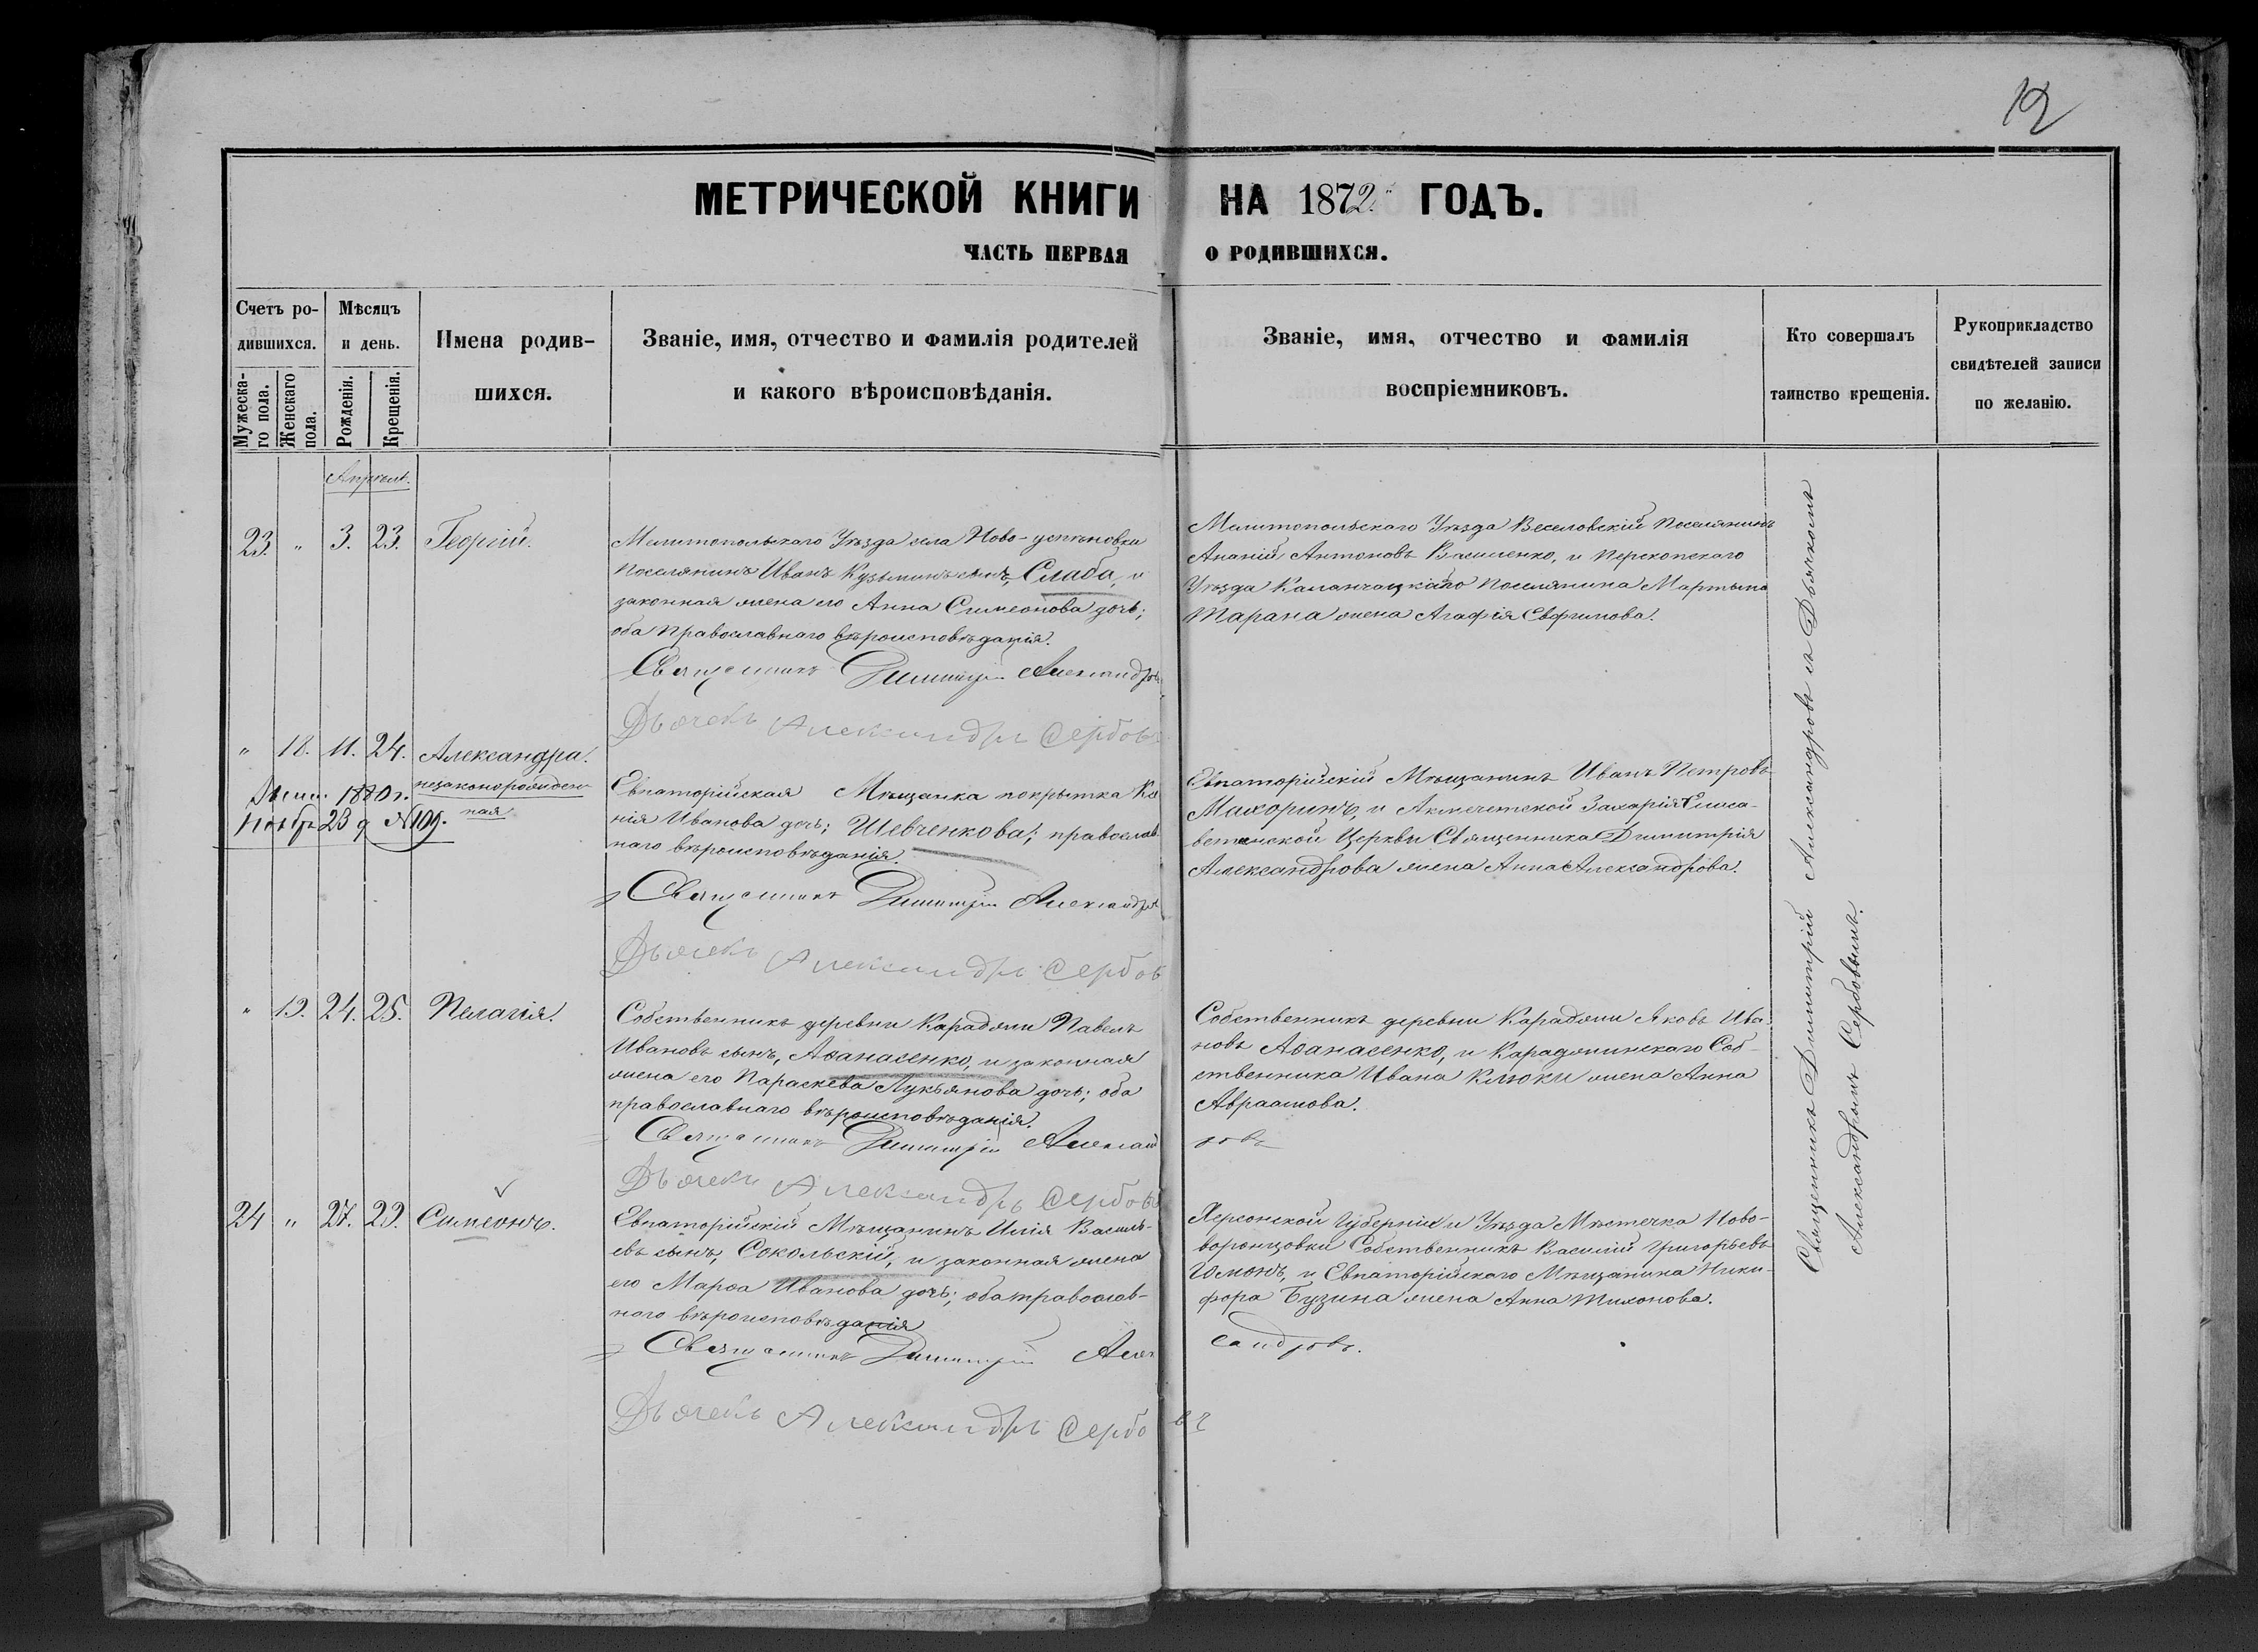 12
МЕТРИЧЕСКОЙ КНИГИ НА 1872 ГОДЪ.
ЧАСТЬ ПЕРВАЯ О РОДИВШИХСЯ.
Счетъ ро-
дившихся.
Мужеска-
го пола.
Женскаго
пола.
Мѣсяцъ
и день.
Рожденія.
Крещенія.
Имена родив-
шихся.
Званіе, имя, отчество и фамилія родителей
и какого вѣроисповѣданія.
Званіе, имя, отчество и фамилія
воспріемниковъ.
Кто совершалъ
таинство крещенія.
Рукоприкладство
свидѣтелей записи
по желанію.
Апрѣль.
23. " 3. 23. Георгій.
Мелитопольскаго Уѣзда села Ново-успеновки
поселянинъ Иванъ Кузьминъ сынъ, Слаба, и
законная жена его Анна Симеонова дочь;
оба православнаго вѣроисповѣданія.
Священникъ Димитрій Александровъ
Дьячекъ Александръ Сербовъ
Мелитопольскаго Уѣзда Веселовскій поселянинъ
Ананій Антоновъ Василенко, и Перекопскаго
Уѣзда Каланчацкаго поселянина Мартына
Тарана жена Агафія Евфимова.
" 18. 11. 24. Александра.
незаконорожден-
ная
1880 г.
Нояб. 23 д. №109.
Евпаторійская Мѣщанка покрытка
нія Иванова дочь; Шевченкова; православ-
наго вѣроисповѣданія.
Священникъ Димитрій Александровъ
Дьячекъ Александръ Сербовъ
Евпаторійскій Мѣщанинъ Иванъ Петровъ
Махоринъ, и Акмечетской Захарія Елиса-
ветинской Церкви Священника Димитрія
Александрова жена Анна Александрова.
" 19. 24. 25. Пелагія.
Собственникъ деревни Караджи Павелъ
Ивановъ сынъ, Аѳанасенко, и законная
жена его Параскева Лукьянова дочь; оба
православнаго вѣроисповѣданія.
Священникъ Димитрій Александ
ровъ
Дьячекъ Александръ Сербовъ
Собственникъ деревни Караджи Яковъ Ива-
новъ Аѳанасенко, и Караджинскаго Соб-
ственника Ивана Клюки жена Анна
Авраамова.
24 " 27. 29. Симеонъ.
Евпаторійскій Мѣщанинъ Илія Василь-
евъ сынъ, Сокольскій, и законная жена
его Марѳа Иванова дочь; оба православ-
наго вѣроисповѣданія
Священникъ Димитрій Алек
сандровъ.
Дьячекъ Александръ Сербо
въ
Херсонской Губерніи и Уѣзда Мѣстечка Ново-
воронцовки Собственникъ Василій Григорьевъ
Гомонъ, и Евпаторійскаго Мѣщанина Ники-
фора Бузина жена Анна Тихонова.
Священникъ Димитрій Александровъ съ Дьячкомъ
Александромъ Сербовымъ.